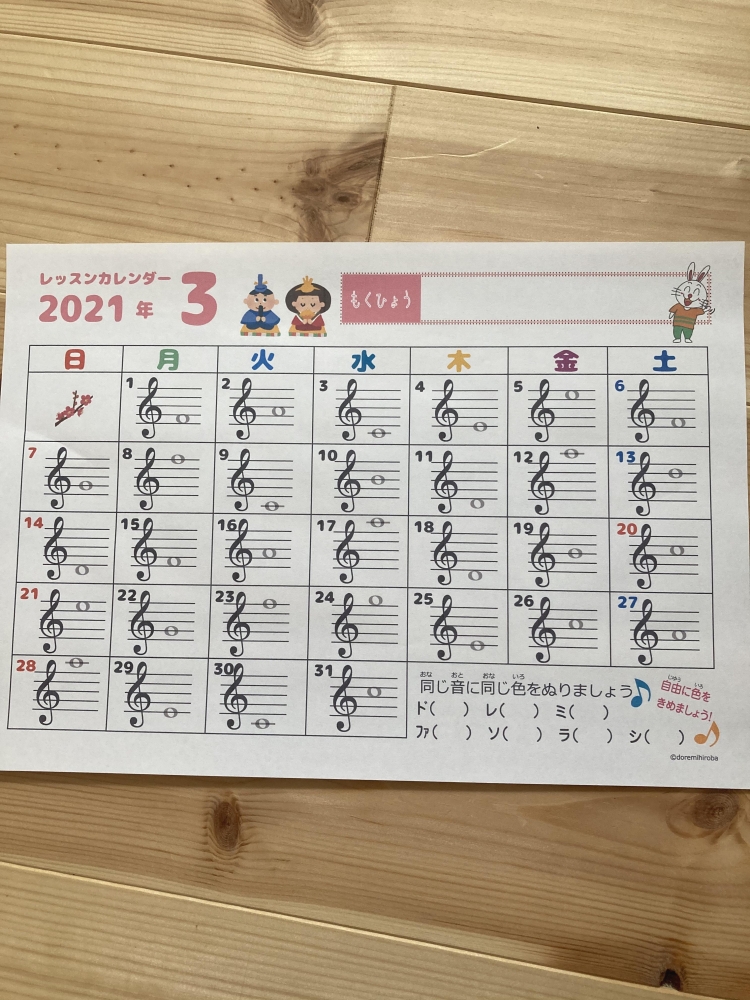 レッスンカレンダー
2021年 3
もくひょう
日 月 火 水 木 金 土
1 2 3 4 5 6
7 8 9 10 11 12 13
14 15 16 17 18 19 20
21 22 23 24 25 26 27
28 29 30 31
おな おと おな いろ
同じ音に同じ色をぬりましょう
じゆう いろ
自由に色を
きめましょう!
ド( ) レ( ) ミ( )
ファ( ) ソ( ) ラ( ) シ( )
©doremihiroba